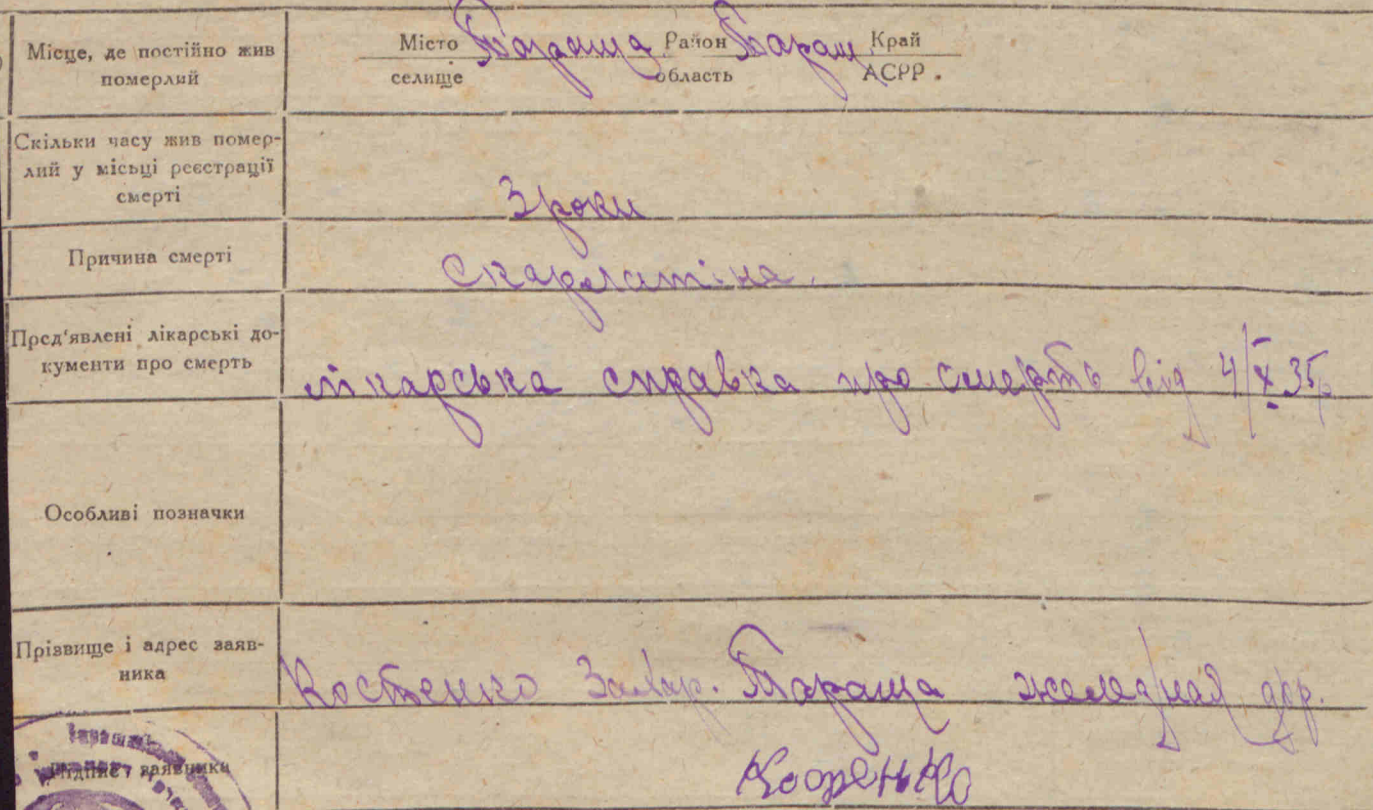 Місце, де постійно жив
померлий
Місто Тараща Район Таращ Край
селище область АСРР.
Скільки часу жив помер-
лий у місьці реєстрації
смерті
3 роки
Причина смерті
Скарлатіна.
Пред'явлені лікарські до-
кументи про смерть
лікарська справка про смерть від 4/X 35р
Особливі позначки
Прізвище і адрес заяв-
ника
Костенко Захар. Тараща железная дор.
Підпис заявника